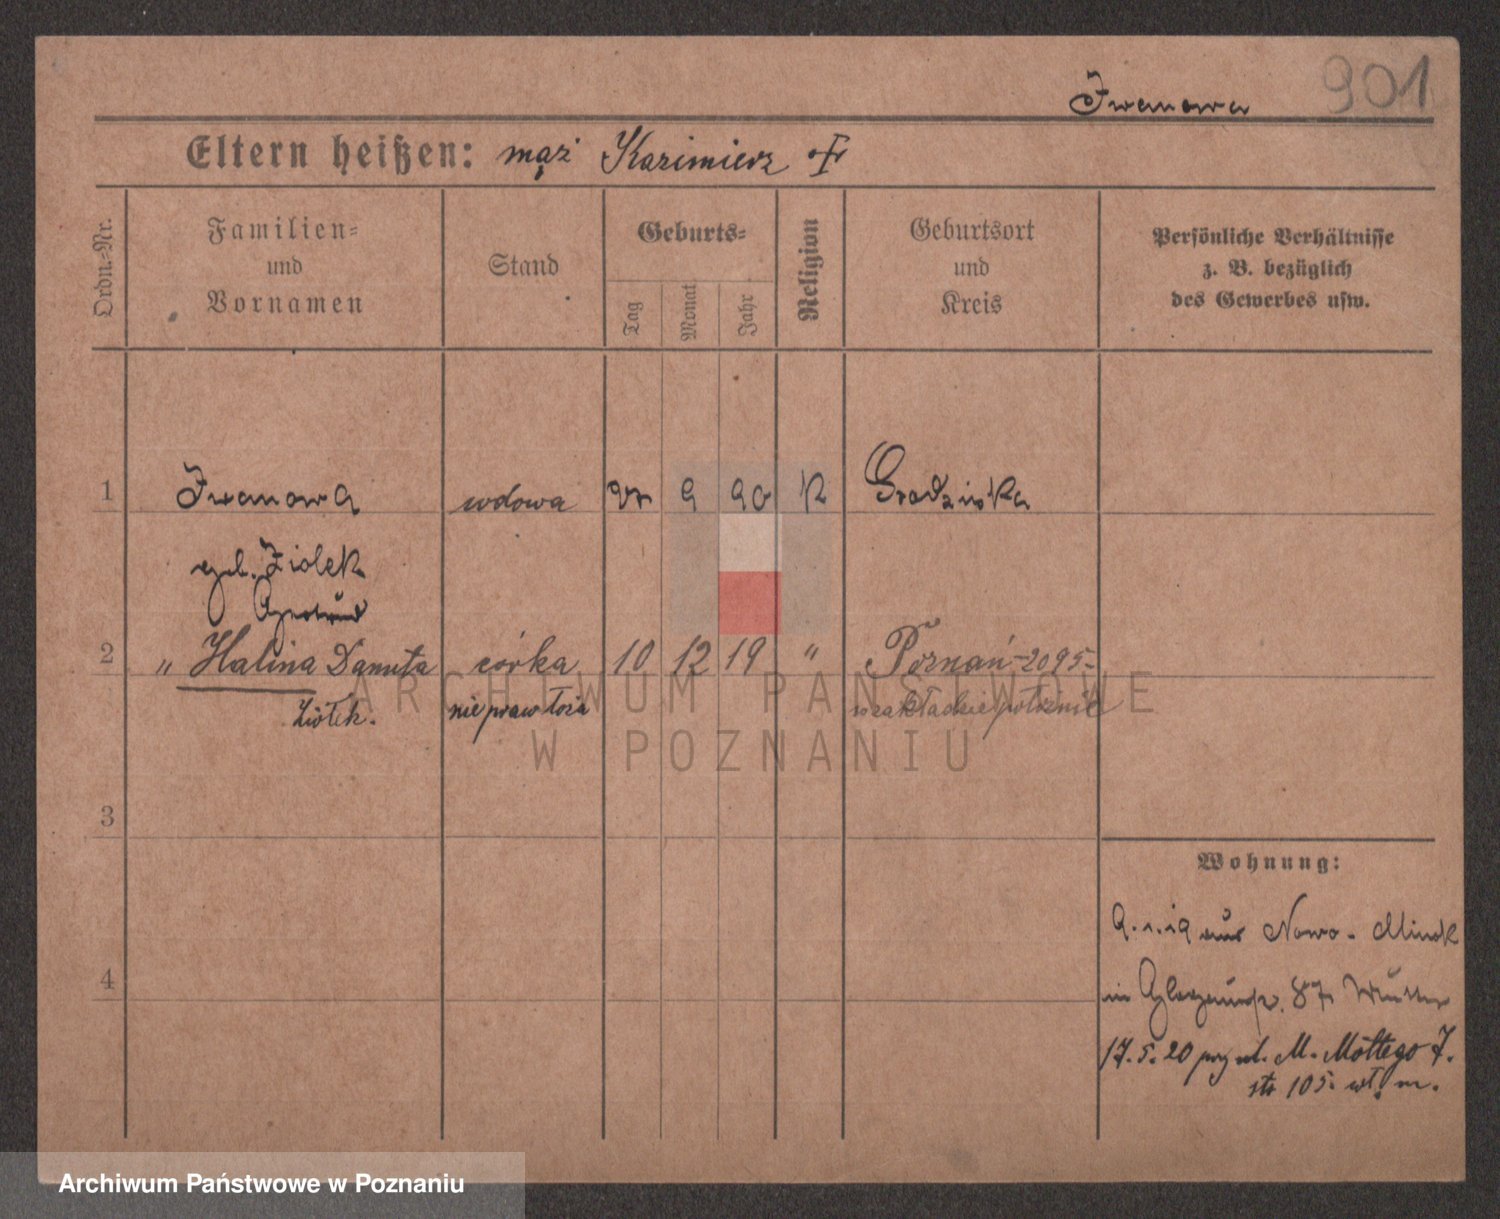 901
Iwanowa
Eltern heißen: mąż Kazimierz
Ordn.-Nr.
Familien-
und
Vornamen
Stand
Geburts-
Tag
Monat
Jahr
Religion
Geburtsort
und
Kreis
Persönliche Verhältnisse
z. B. bezüglich
des Gewerbes usw.
1 Iwanowa wdowa 9 90 K Grodzisko
geb. Ziolek
2 " Halina Danuta córka 10 12 19 " Poznań - 2095 -
Ziółek. nieprawłoża w zakładzie położnic
ARCHIWUM PAŃSTWOWE
W POZNANIU
3
Wohnung:
aus Nowo-Minsk
4
in 87
17.5.20 M. Mottego 7.
str 105 wł. m.
Archiwum Państwowe w Poznaniu